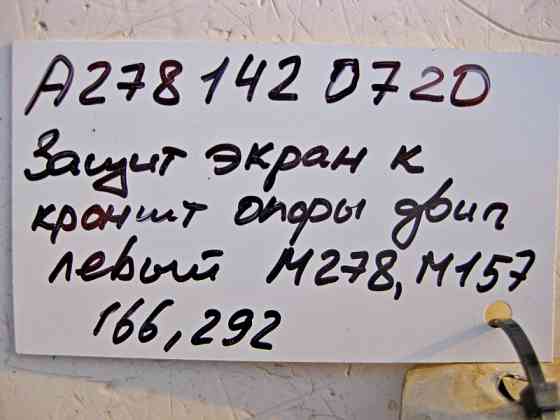 A278 142 0720
Защит экран к
кроншт опоры двиг
левый M278, M157
166, 292